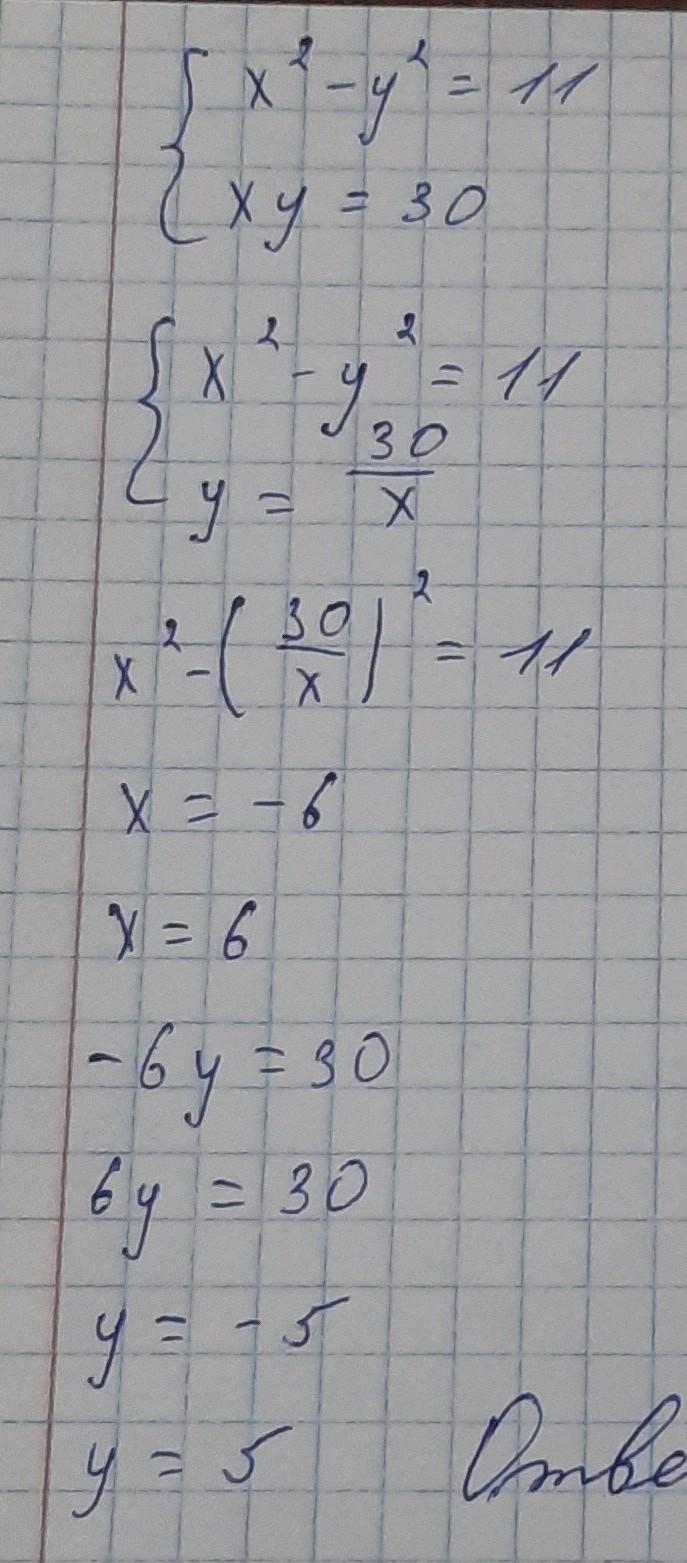 { x² - y² = 11
xy = 30
{ x² - y² = 11
y = 30/x
x² - (30/x)² = 11
x = -6
x = 6
-6y = 30
6y = 30
y = -5
y = 5 Отве